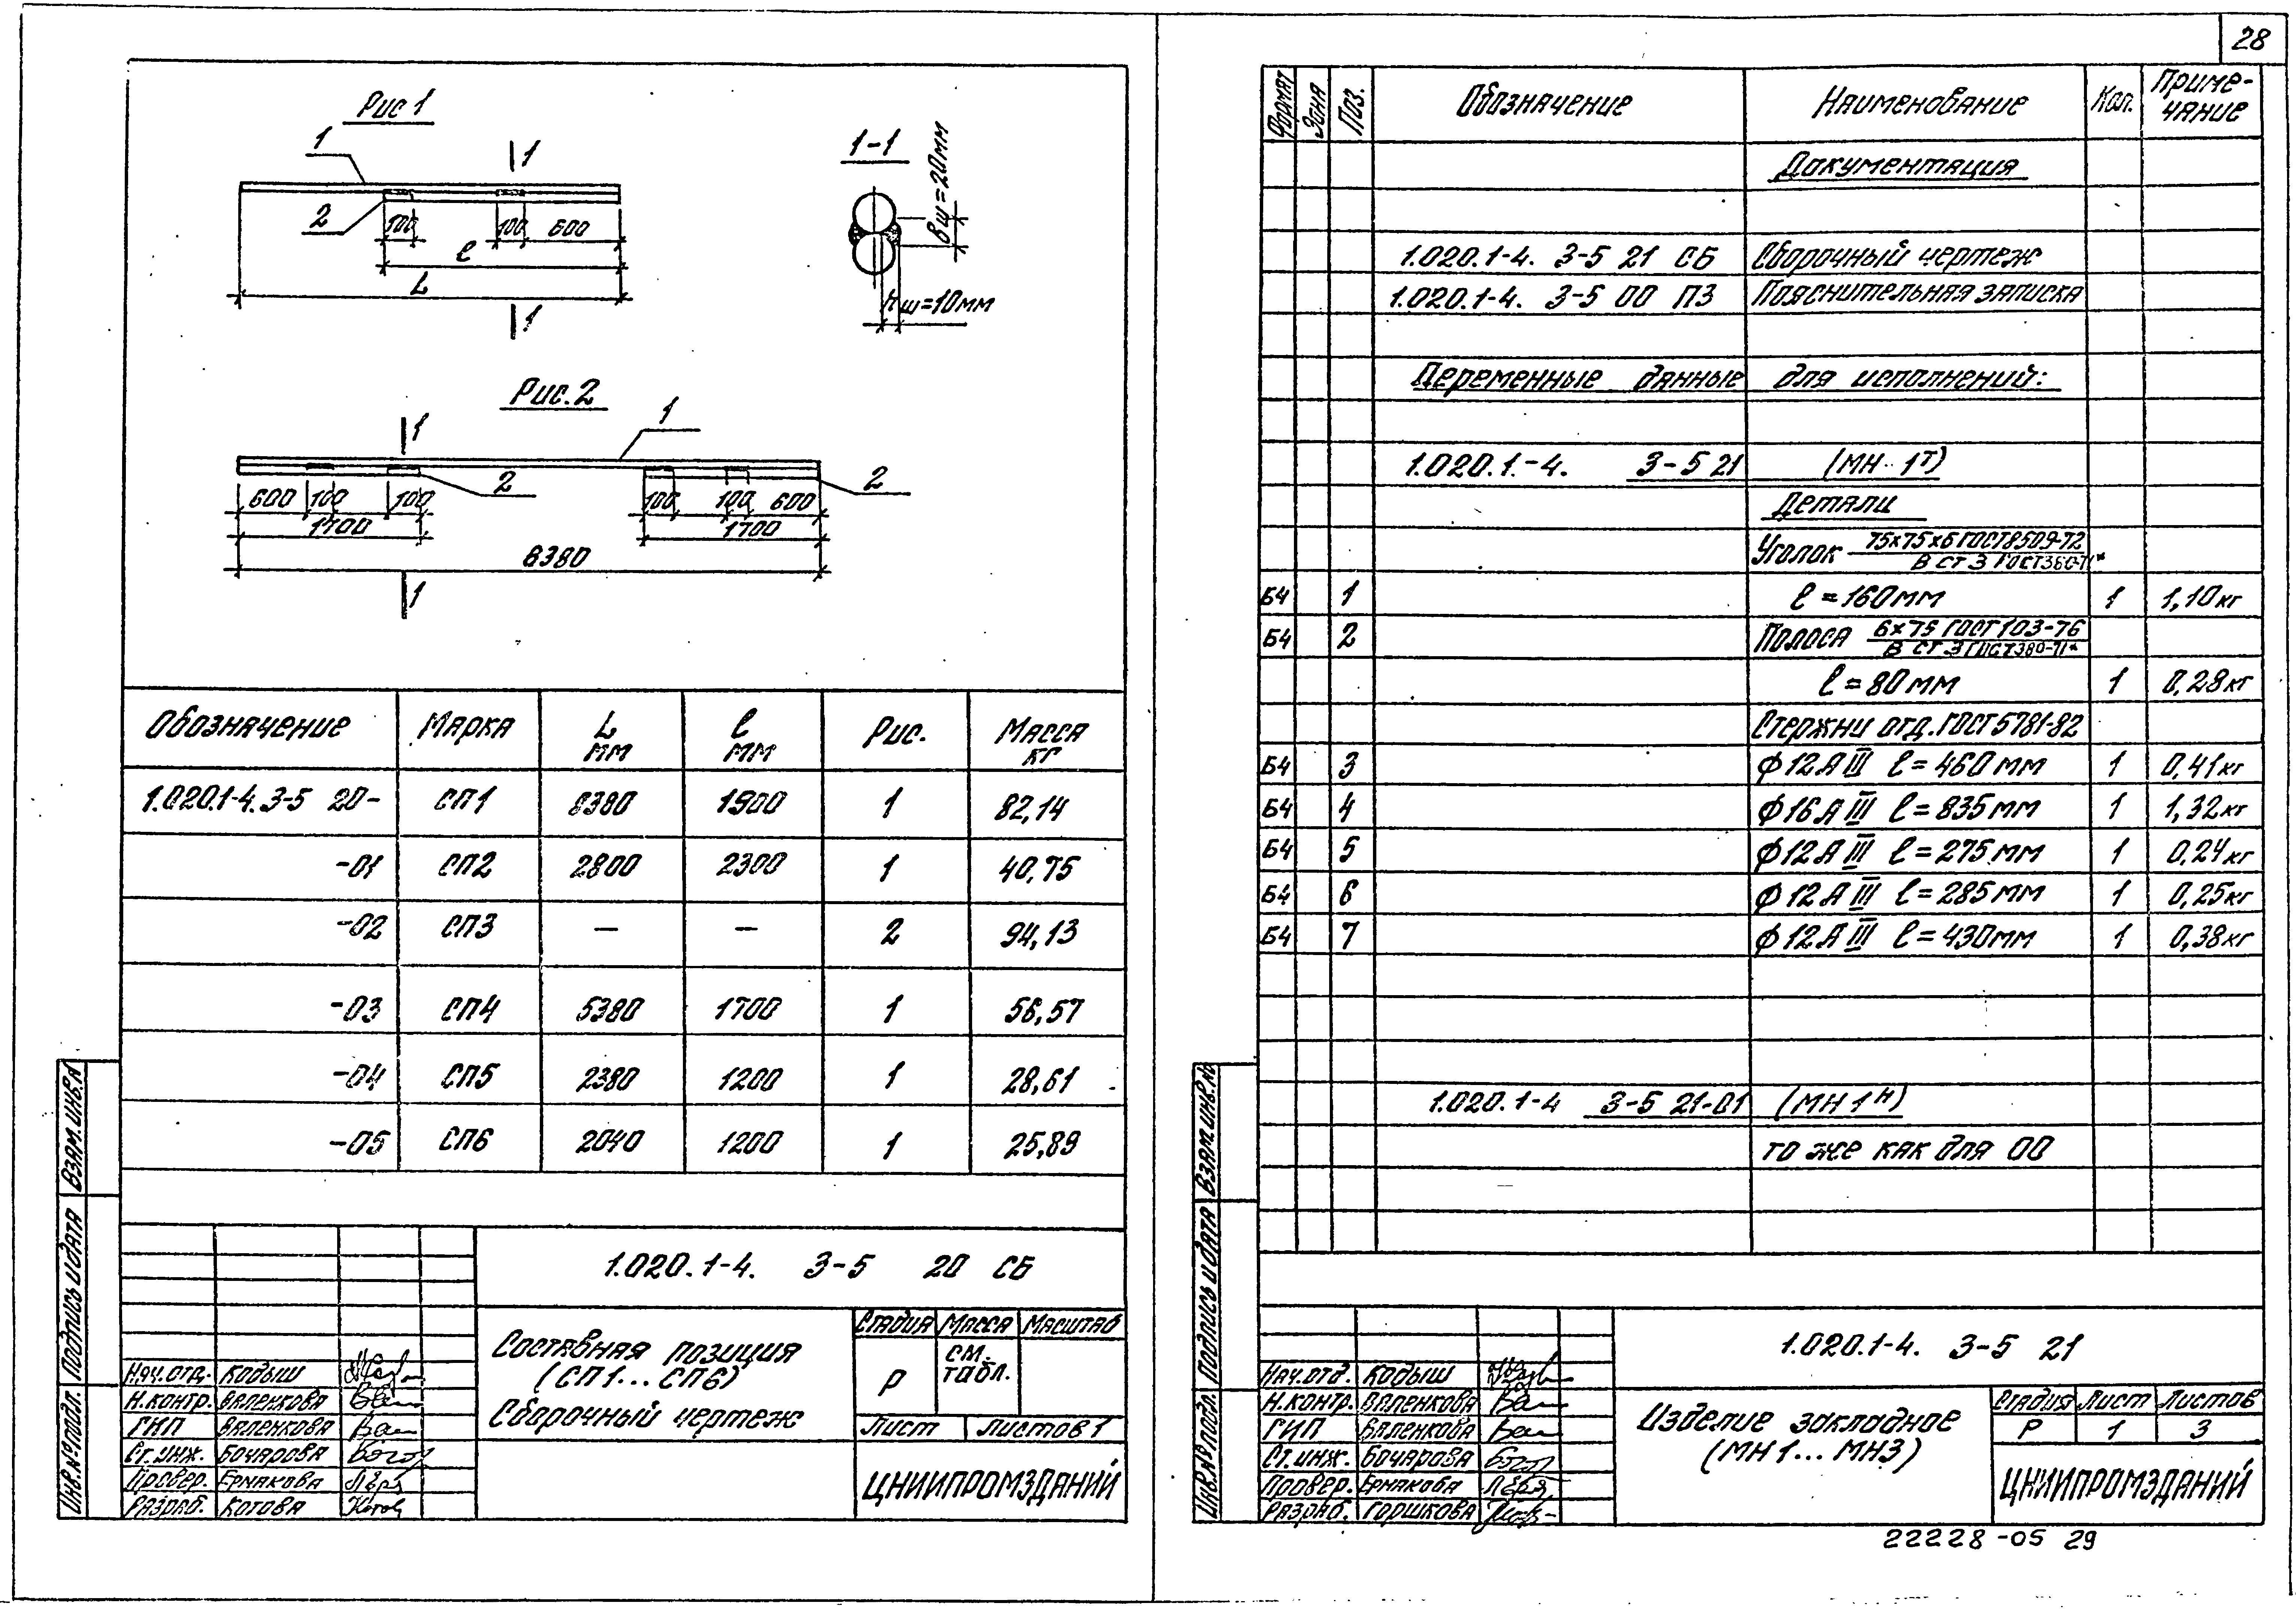 28
Рис 1
1
1
2
100
100
600
ℓ
L
1
1-1
вш=20мм
hш=10мм
Рис.2
1
1
2
2
600
100
100
100
100
600
1700
1700
8380
1
Обозначение Марка L мм ℓ мм Рис. Масса кг
1.020.1-4.3-5 20- СП1 8380 1900 1 82,14
-01 СП2 2800 2300 1 40,75
-02 СП3 — — 2 94,13
-03 СП4 5380 1700 1 56,57
-04 СП5 2380 1200 1 28,61
-05 СП6 2040 1200 1 25,89
1.020.1-4. 3-5 20 СБ
Составная позиция
(СП1...СП6)
Сборочный чертеж
Стадия Масса Масштаб
Р см. табл.
Лист Листов 1
ЦНИИПРОМЗДАНИЙ
Нач.отд. Кодыш
Н.контр. Валенкова
ГИП Валенкова
Ст.инж. Бочарова
Провер. Ермакова
Разраб. Котова
Инв.№подл. Подпись и дата Взам.инв.№
Формат Зона Поз. Обозначение Наименование Кол. Приме-
чание
Документация
1.020.1-4. 3-5 21 СБ Сборочный чертеж
1.020.1-4. 3-5 00 ПЗ Пояснительная записка
Переменные данные для исполнений:
1.020.1.-4. 3-5 21 (МН-1т)
Детали
Уголок 75×75×6 ГОСТ8509-72
В СТ 3 ГОСТ380-71*
Б4 1 ℓ=160мм 1 1,10кг
Б4 2 Полоса 6×75 ГОСТ 103-76
В СТ 3 ГОСТ380-71*
ℓ=80мм 1 0,28кг
Стержни отд.ГОСТ5781-82
Б4 3 ф12АIII ℓ=460мм 1 0,41кг
Б4 4 ф16АIII ℓ=835мм 1 1,32кг
Б4 5 ф12АIII ℓ=275мм 1 0,24кг
Б4 6 ф12АIII ℓ=285мм 1 0,25кг
Б4 7 ф12АIII ℓ=430мм 1 0,38кг
1.020.1-4 3-5 21-01 (МН1н)
то же как для 00
1.020.1-4. 3-5 21
Изделие закладное
(МН1...МН3)
Стадия Лист Листов
Р 1 3
ЦНИИПРОМЗДАНИЙ
Нач.отд. Кодыш
Н.контр. Валенкова
ГИП Валенкова
Ст.инж. Бочарова
Провер. Ермакова
Разраб. Горшкова
Инв.№подл. Подпись и дата Взам.инв.№
22228-05 29